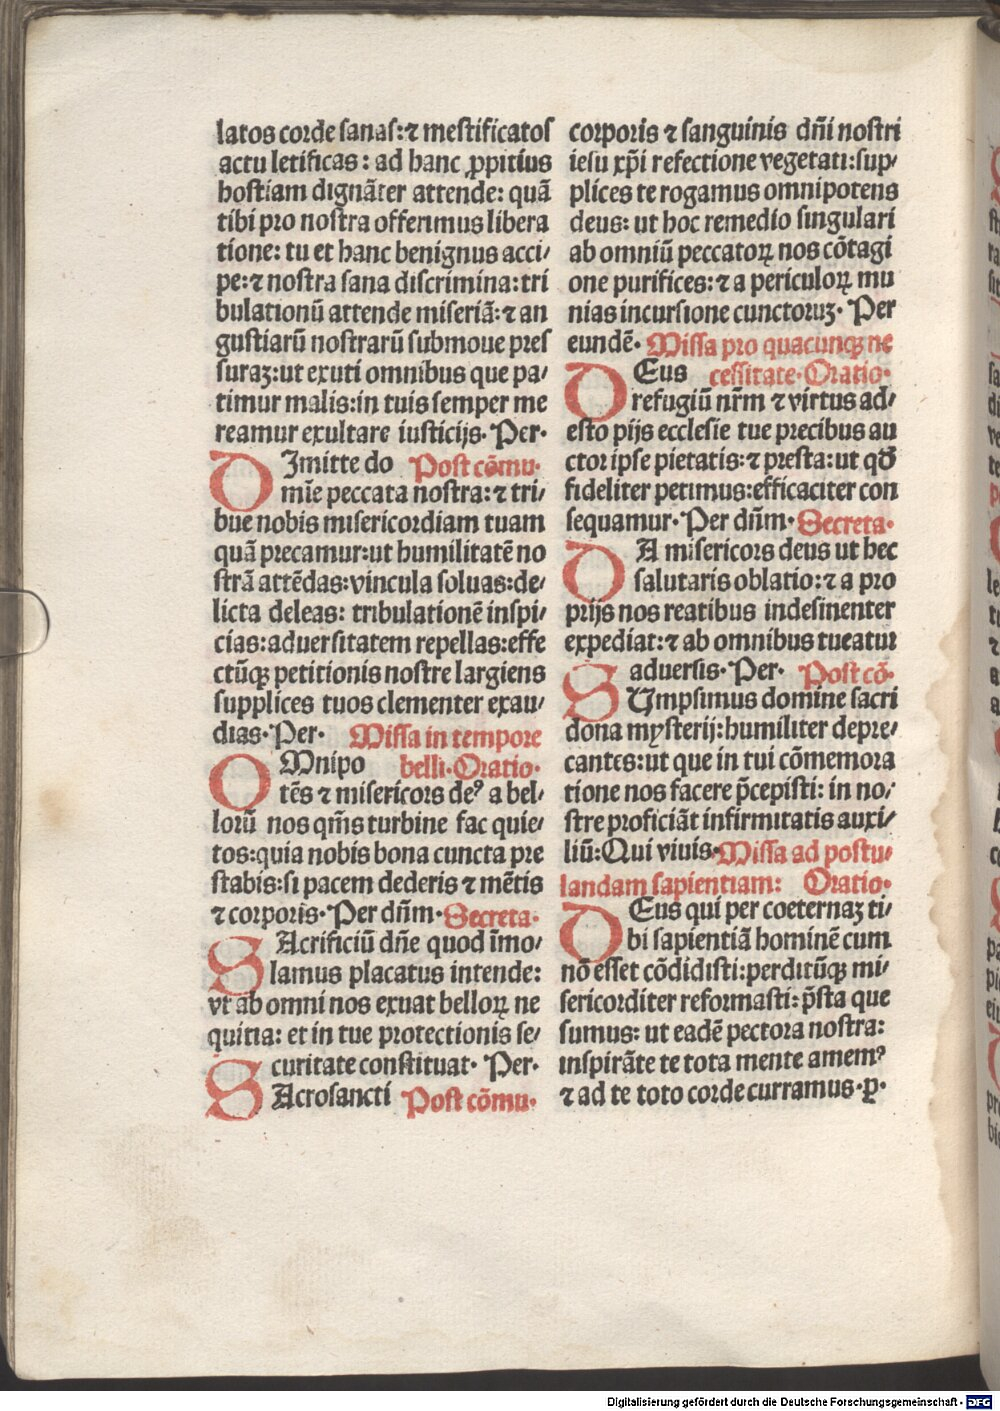 latos corde sanas: ⁊ mestificatos
actu letificas: ad hanc ꝓpitius
hostiam dignãter attende: quã
tibi pro nostra offerimus libera
tione: tu et hanc benignus acci⸗
pe: ⁊ nostra sana discrimina: tri
bulationũ attende miseriã: ⁊ an
gustiarũ nostrarũ submoue pres
suraꝫ: ut exuti omnibus que pa⸗
timur malis: in tuis semper me
reamur exultare iusticijs. Per.
DImitte do Post cõmu.
mĩe peccata nostra: ⁊ tri⸗
bue nobis misericordiam tuam
quã precamur: ut humilitatẽ no
strã attẽdas: vincula soluas: de⸗
licta deleas: tribulationẽ inspi⸗
cias: aduersitatem repellas: effe
ctũqꝫ petitionis nostre largiens
supplices tuos clementer exau⸗
dias. Per. Missa in tempore
OMnipo belli. Oratio.
tẽs ⁊ misericors deꝰ a bel⸗
lorũ nos qm̃s turbine fac quie⸗
tos: quia nobis bona cuncta pre
stabis: si pacem dederis ⁊ mẽtis
⁊ corporis. Per dñm. Secreta.
SAcrificiũ dñe quod ĩmo⸗
lamus placatus intende:
vt ab omni nos exuat belloꝝ ne
quitia: et in tue protectionis se⸗
curitate constituat. Per.
SAcrosancti Post cõmu.
corporis ⁊ sanguinis dñi nostri
iesu xp̃i refectione vegetati: sup⸗
plices te rogamus omnipotens
deus: ut hoc remedio singulari
ab omniũ peccatoꝝ nos cõtagi
one purifices: ⁊ a periculoꝝ mu
nias incursione cunctoruꝫ. Per
eundẽ. Missa pro quacunqꝫ ne
DEus cessitate. Oratio.
refugiũ nr̃m ⁊ virtus ad⸗
esto pijs ecclesie tue precibus au
ctor ipse pietatis: ⁊ presta: ut qđ
fideliter petimus: efficaciter con
sequamur. Per dñm. Secreta.
DA misericors deus ut hec
salutaris oblatio: ⁊ a pro
prijs nos reatibus indesinenter
expediat: ⁊ ab omnibus tueatur
aduersis. Per. Post cõ.
SUmpsimus domine sacri
dona mysterij: humiliter depre⸗
cantes: ut que in tui cõmemora
tione nos facere p̃cepisti: in no⸗
stre proficiãt infirmitatis auxi⸗
liũ: Qui viuis. Missa ad postu⸗
landam sapientiam: Oratio.
DEus qui per coeternaꝫ ti⸗
bi sapientiã hominẽ cum
nõ esset cõdidisti: perditũqꝫ mi⸗
sericorditer reformasti: p̃sta que
sumus: ut eadẽ pectora nostra:
inspirãte te tota mente amemꝰ
⁊ ad te toto corde curramus. ꝑ.
Digitalisierung gefördert durch die Deutsche Forschungsgemeinschaft - DFG